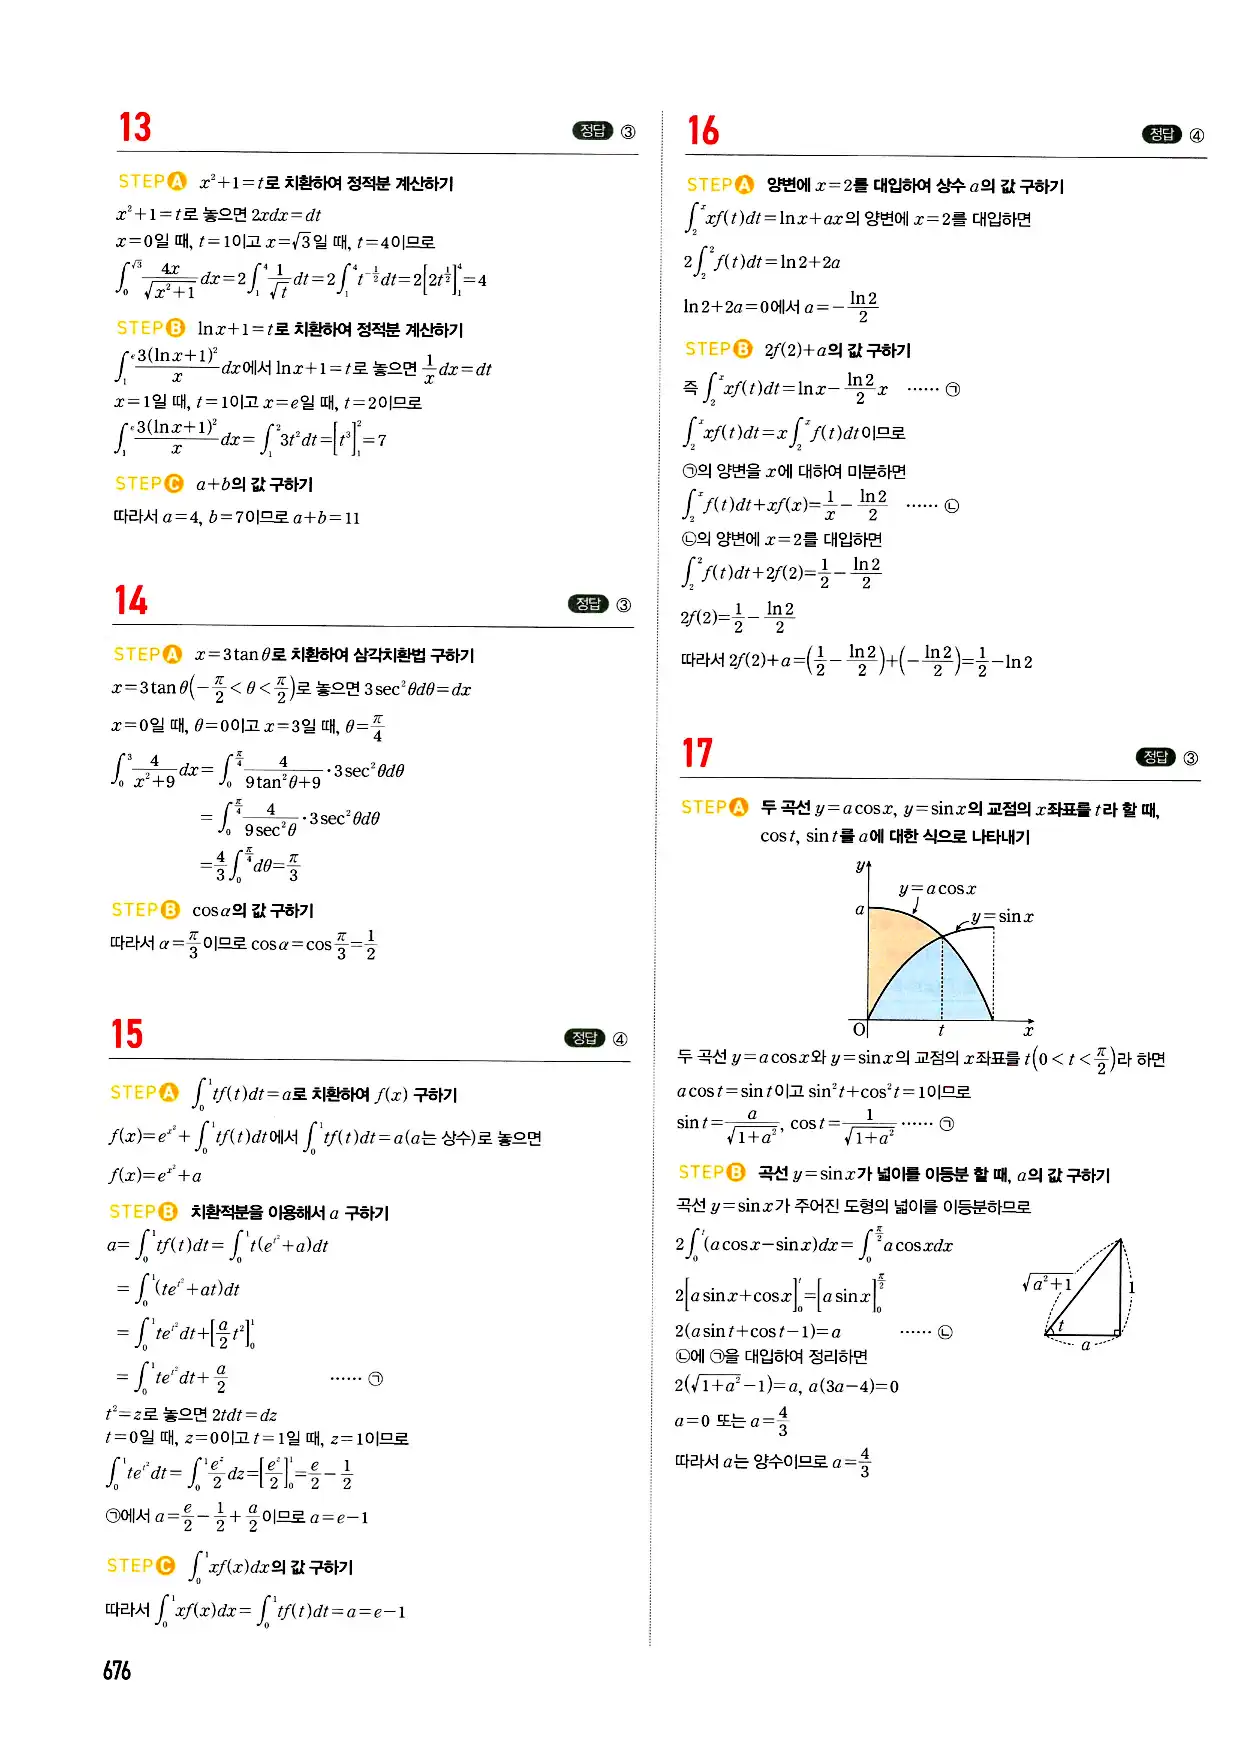 13
정답 ③
STEP A x²+1=t로 치환하여 정적분 계산하기
x²+1=t로 놓으면 2xdx=dt
x=0일 때, t=1이고 x=√3일 때, t=4이므로
∫₀^√3 4x/√(x²+1) dx=2∫₁⁴ 1/√t dt=2∫₁⁴ t^(-1/2)dt=2[2t^(1/2)]₁⁴=4
STEP B lnx+1=t로 치환하여 정적분 계산하기
∫₁^e 3(lnx+1)²/x dx에서 lnx+1=t로 놓으면 1/x dx=dt
x=1일 때, t=1이고 x=e일 때, t=2이므로
∫₁^e 3(lnx+1)²/x dx=∫₁² 3t²dt=[t³]₁²=7
STEP C a+b의 값 구하기
따라서 a=4, b=7이므로 a+b=11
14
정답 ③
STEP A x=3tanθ로 치환하여 삼각치환법 구하기
x=3tanθ(-π/2<θ<π/2)로 놓으면 3sec²θdθ=dx
x=0일 때, θ=0이고 x=3일 때, θ=π/4
∫₀³ 4/(x²+9) dx=∫₀^(π/4) 4/(9tan²θ+9)·3sec²θdθ
=∫₀^(π/4) 4/(9sec²θ)·3sec²θdθ
=4/3∫₀^(π/4) dθ=π/3
STEP B cosα의 값 구하기
따라서 α=π/3이므로 cosα=cos π/3=1/2
15
정답 ④
STEP A ∫₀¹ tf(t)dt=a로 치환하여 f(x) 구하기
f(x)=e^(x²)+∫₀¹ tf(t)dt에서 ∫₀¹ tf(t)dt=a(a는 상수)로 놓으면
f(x)=e^(x²)+a
STEP B 치환적분을 이용해서 a 구하기
a=∫₀¹ tf(t)dt=∫₀¹ t(e^(t²)+a)dt
=∫₀¹ (te^(t²)+at)dt
=∫₀¹ te^(t²)dt+[a/2 t²]₀¹
=∫₀¹ te^(t²)dt+a/2 …… ㉠
t²=z로 놓으면 2tdt=dz
t=0일 때, z=0이고 t=1일 때, z=1이므로
∫₀¹ te^(t²)dt=∫₀¹ e^z/2 dz=[e^z/2]₀¹=e/2-1/2
㉠에서 a=e/2-1/2+a/2이므로 a=e-1
STEP C ∫₀¹ xf(x)dx의 값 구하기
따라서 ∫₀¹ xf(x)dx=∫₀¹ tf(t)dt=a=e-1
676
16
정답 ④
STEP A 양변에 x=2를 대입하여 상수 a의 값 구하기
∫₂^x xf(t)dt=lnx+ax의 양변에 x=2를 대입하면
2∫₂² f(t)dt=ln2+2a
ln2+2a=0에서 a=-ln2/2
STEP B 2f(2)+a의 값 구하기
즉 ∫₂^x xf(t)dt=lnx-ln2/2 x …… ㉠
∫₂^x xf(t)dt=x∫₂^x f(t)dt이므로
㉠의 양변을 x에 대하여 미분하면
∫₂^x f(t)dt+xf(x)=1/x-ln2/2 …… ㉡
㉡의 양변에 x=2를 대입하면
∫₂² f(t)dt+2f(2)=1/2-ln2/2
2f(2)=1/2-ln2/2
따라서 2f(2)+a=(1/2-ln2/2)+(-ln2/2)=1/2-ln2
17
정답 ③
STEP A 두 곡선 y=acosx, y=sinx의 교점의 x좌표를 t라 할 때,
cost, sint를 a에 대한 식으로 나타내기
y
y=acosx
a
y=sinx
O
t
x
두 곡선 y=acosx와 y=sinx의 교점의 x좌표를 t(0<t<π/2)라 하면
acost=sint이고 sin²t+cos²t=1이므로
sint=a/√(1+a²), cost=1/√(1+a²) …… ㉠
STEP B 곡선 y=sinx가 넓이를 이등분 할 때, a의 값 구하기
곡선 y=sinx가 주어진 도형의 넓이를 이등분하므로
2∫₀^t (acosx-sinx)dx=∫₀^(π/2) acosxdx
2[asinx+cosx]₀^t=[asinx]₀^(π/2)
2(asint+cost-1)=a …… ㉡
√(a²+1)
1
t
a
㉡에 ㉠을 대입하여 정리하면
2(√(1+a²)-1)=a, a(3a-4)=0
a=0 또는 a=4/3
따라서 a는 양수이므로 a=4/3